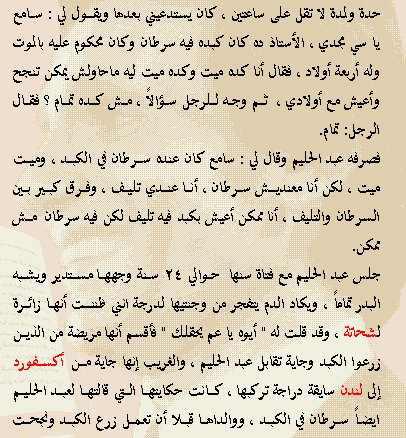 حدة ولمدة لا تقل على ساعتين ، كان يستدعيني بعدها ويقول لي : سامع
يا سي مجدي ، الأستاذ ده كان كبده فيه سرطان وكان محكوم عليه بالموت
وله أربعة أولاد ، فقال أنا كده ميت وكده ميت ليه ماحاولش يمكن تنجح
وأعيش مع أولادي ، ثم وجه للرجل سؤالاً ، مش كده تمام ؟ فقال
الرجل: تمام.
فصرفه عبد الحليم وقال لي : سامع كان عنده سرطان في الكبد ، وميت
ميت ، لكن أنا معنديش سرطان ، أنا عندي تليف ، وفرق كبير بين
السرطان والتليف ، أنا ممكن أعيش بكبد فيه تليف لكن فيه سرطان مش
ممكن.
جلس عبد الحليم مع فتاة سنها حوالي ٢٤ سنة وجهها مستدير ويشبه
البدر تماماً ، ويكاد الدم يتفجر من وجنتيها لدرجة انني ظننت أنها زائرة
لشحاتة ، وقد قلت له " أيوه يا عم يحقلك " فأقسم أنها مريضة من الذين
زرعوا الكبد وجاية تقابل عبد الحليم ، والغريب إنها جاية من أكسفورد
إلى لندن سايقة دراجة تركبها ، كانت حكايتها التي قالتها لعبد الحليم
ايضاً سرطان في الكبد ، ووالداها قبلا أن تعمل زرع الكبد ونجحت